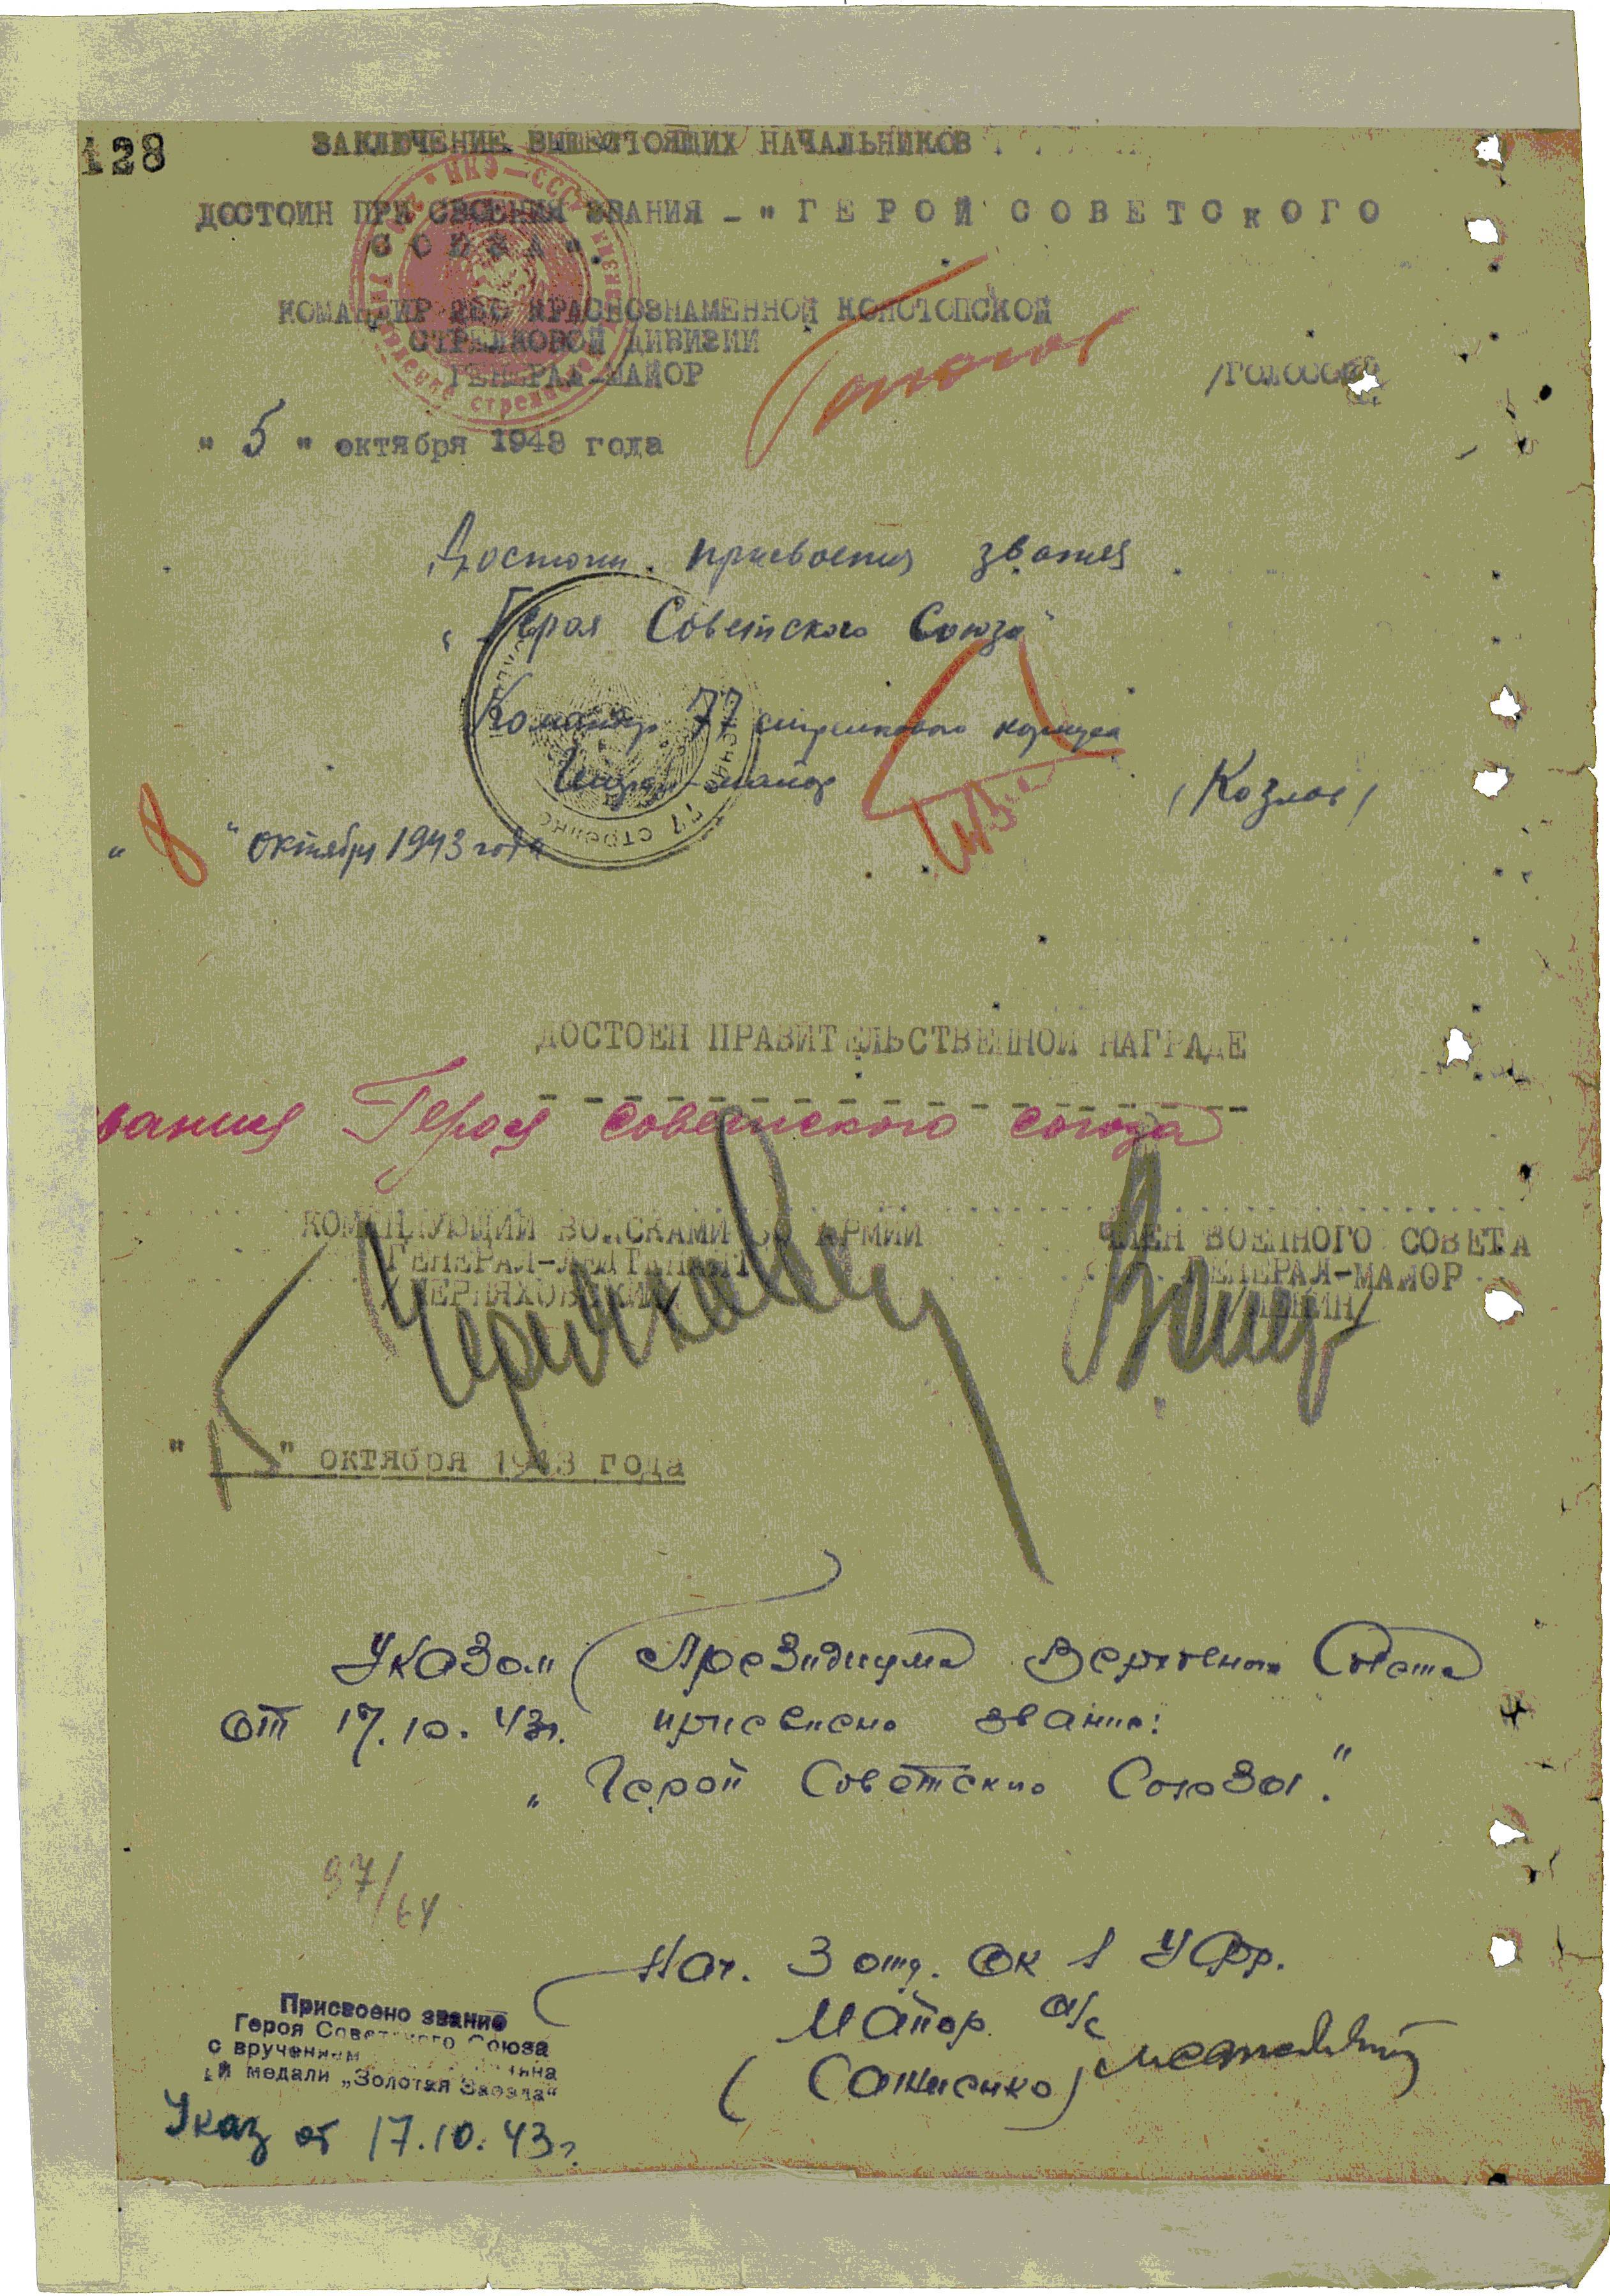 128
ЗАКЛЮЧЕНИЕ ВЫШЕСТОЯЩИХ НАЧАЛЬНИКОВ
ДОСТОИН ПРИСВОЕНИЯ ЗВАНИЯ - "ГЕРОЙ СОВЕТСКОГО
СОЮЗА".
КОМАНДИР КРАСНОЗНАМЕННОЙ КОНОТОПСКОЙ
СТРЕЛКОВОЙ ДИВИЗИИ
ГЕНЕРАЛ-МАЙОР
"5" октября 1943 года
Достоин присвоения звания
"Героя Советского Союза"
Командир 77 стрелкового корпуса
Генерал-майор (Козлов)
"8" октября 1943 года
ДОСТОЕН ПРАВИТЕЛЬСТВЕННОЙ НАГРАДЕ
звания Героя Советского союза
КОМАНДУЮЩИЙ ВОЙСКАМИ 60 АРМИИ
ГЕНЕРАЛ-ЛЕЙТЕНАНТ
ЧЕРНЯХОВСКИЙ
ЧЛЕН ВОЕННОГО СОВЕТА
ГЕНЕРАЛ-МАЙОР
" " октября 1943 года
Указом Президиума Верховного Совета
от 17.10.43г. присвоено звание:
"Герой Советского Союза."
97/64
Нач. 3 отд. ОК 1 Укр.
Майор а/с
Присвоено звание
Героя Советского Союза
с вручением
и медали „Золотая Звезда"
Указ от 17.10.43г.